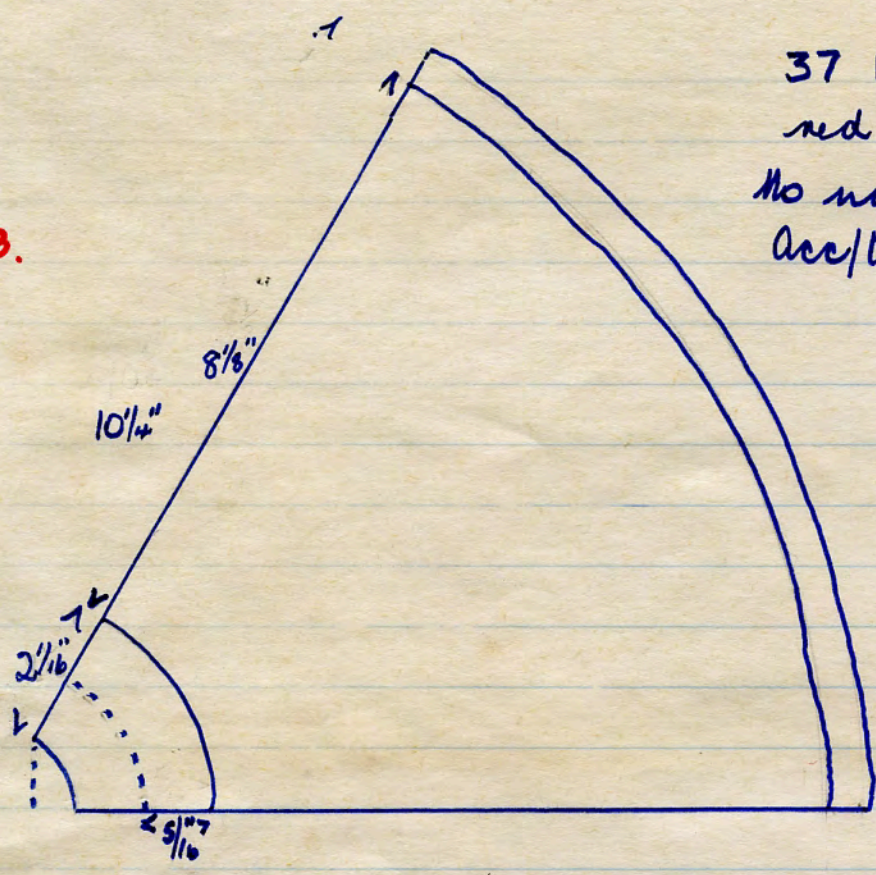 37
red
No
Acc/
3.
8 1/8"
10 1/4"
2 1/16"
5/16"